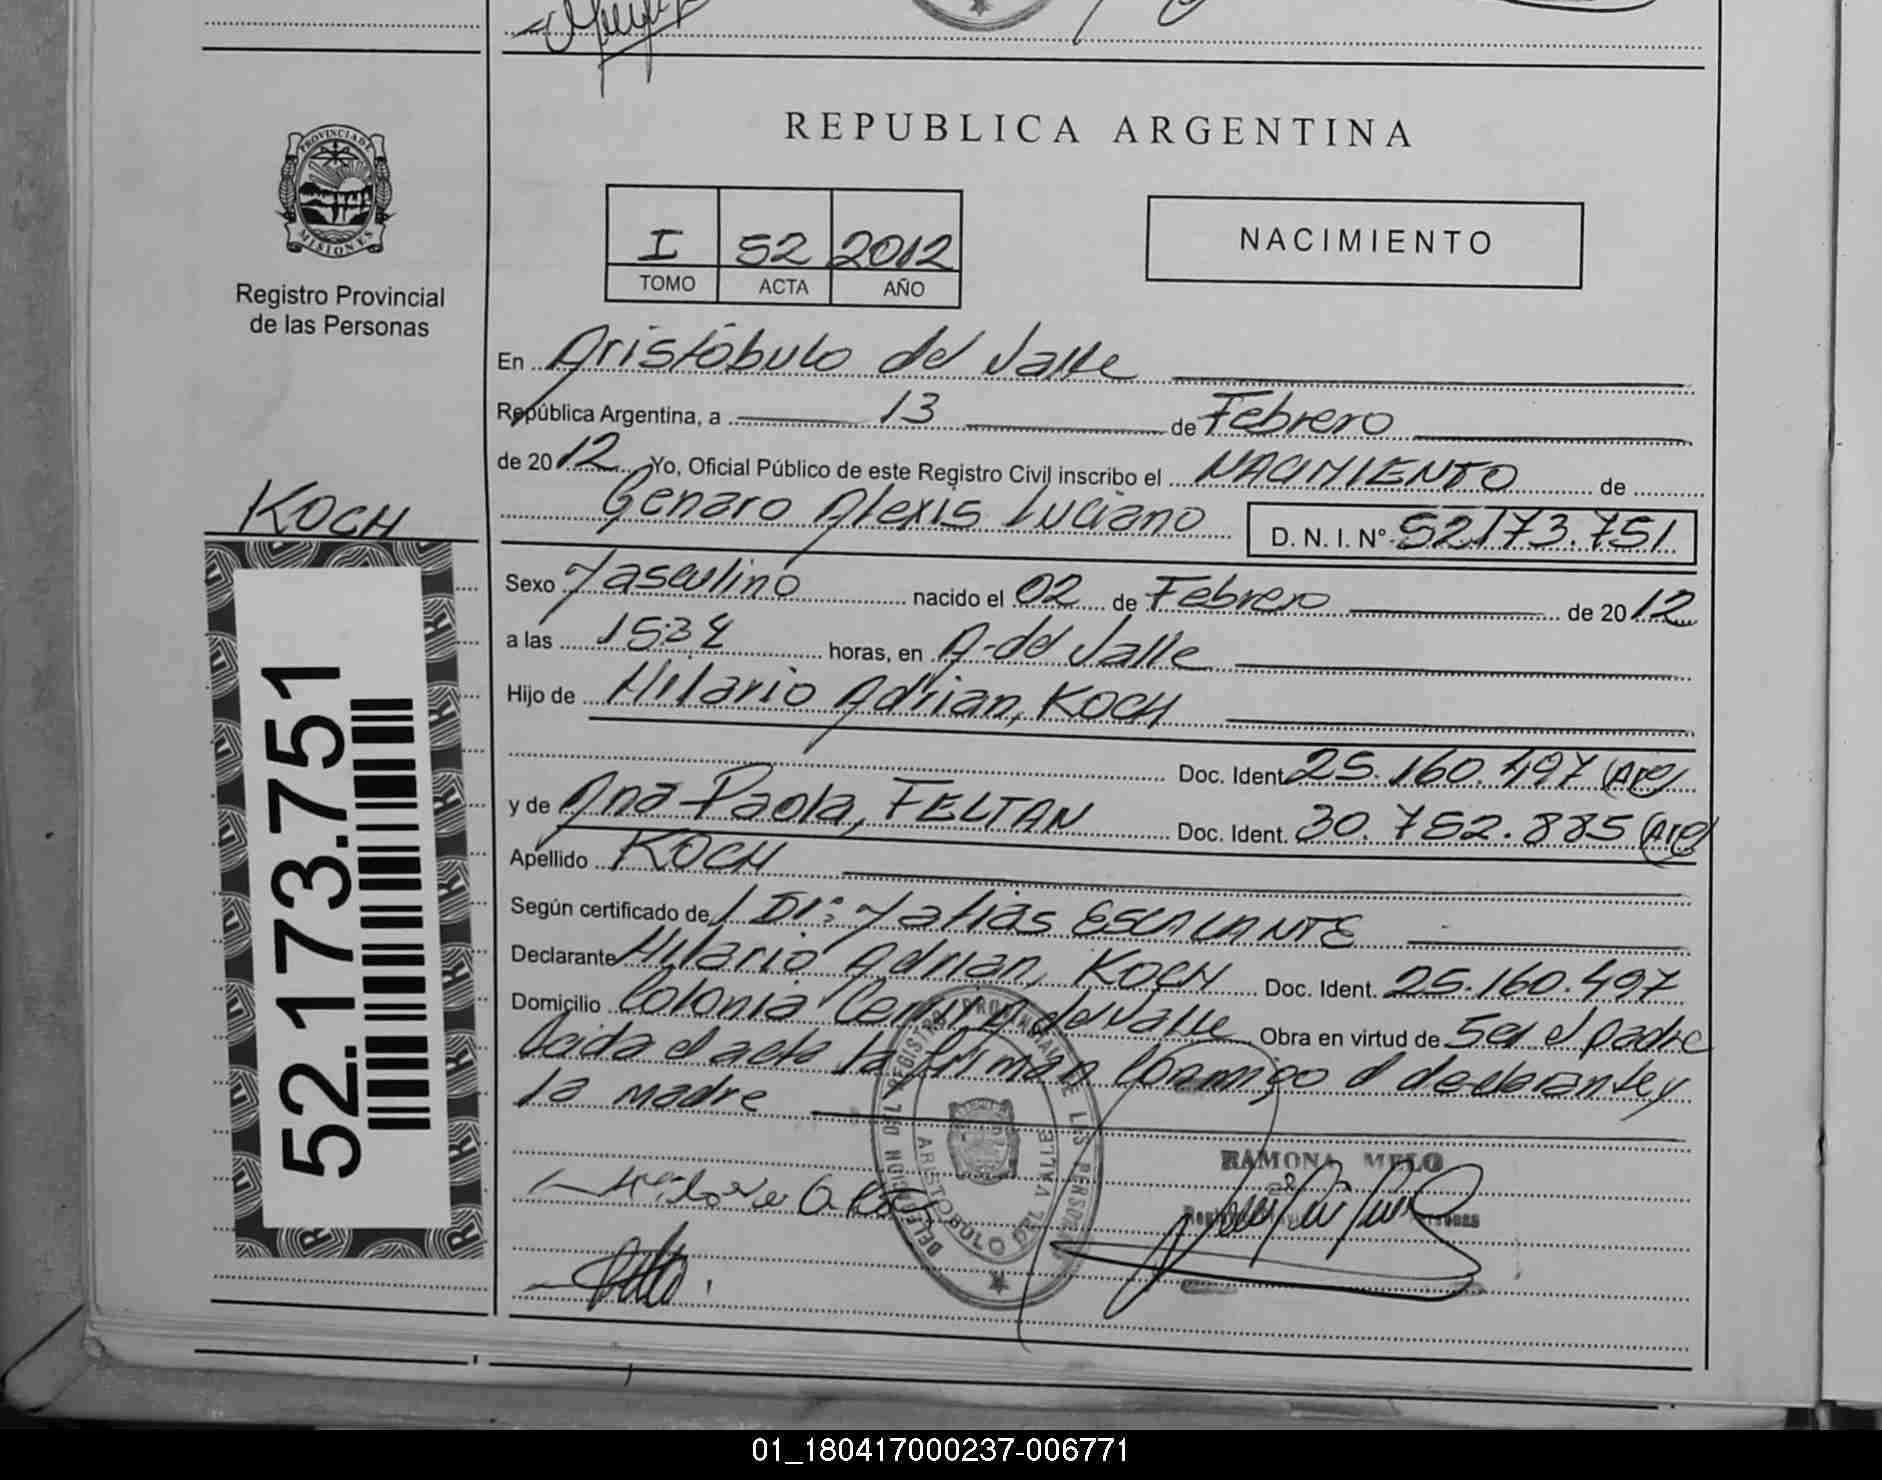 REPUBLICA ARGENTINA
PROVINCIA DE
MISIONES
Registro Provincial
de las Personas
I 52 2012
TOMO ACTA AÑO
NACIMIENTO
En Aristóbulo del Valle
República Argentina, a 13 de Febrero
de 2012 Yo, Oficial Público de este Registro Civil inscribo el NACIMIENTO de
KOCH
Genaro Alexis Luciano D. N. I. Nº 52173.751
52.173.751
Sexo Masculino nacido el 02 de Febrero de 2012
a las 15:34 horas, en A. del Valle
Hijo de Hilario Adrian, KOCH
Doc. Ident. 25.160.497 (Arg)
y de Ana Paola, FELTAN Doc. Ident. 30.752.885 (Arg)
Apellido KOCH
Según certificado de Dr: Matias ESCALANTE
Declarante Hilario Adrian, KOCH Doc. Ident. 25.160.497
Domicilio Colonia del Valle Obra en virtud de Ser el padre
Leida el acta la firman Conmigo el declarante y
la madre
REGISTRO PROVINCIAL DE LAS PERSONAS
DELEGACION
ARISTOBULO DEL VALLE
RAMONA MELO
01_180417000237-006771